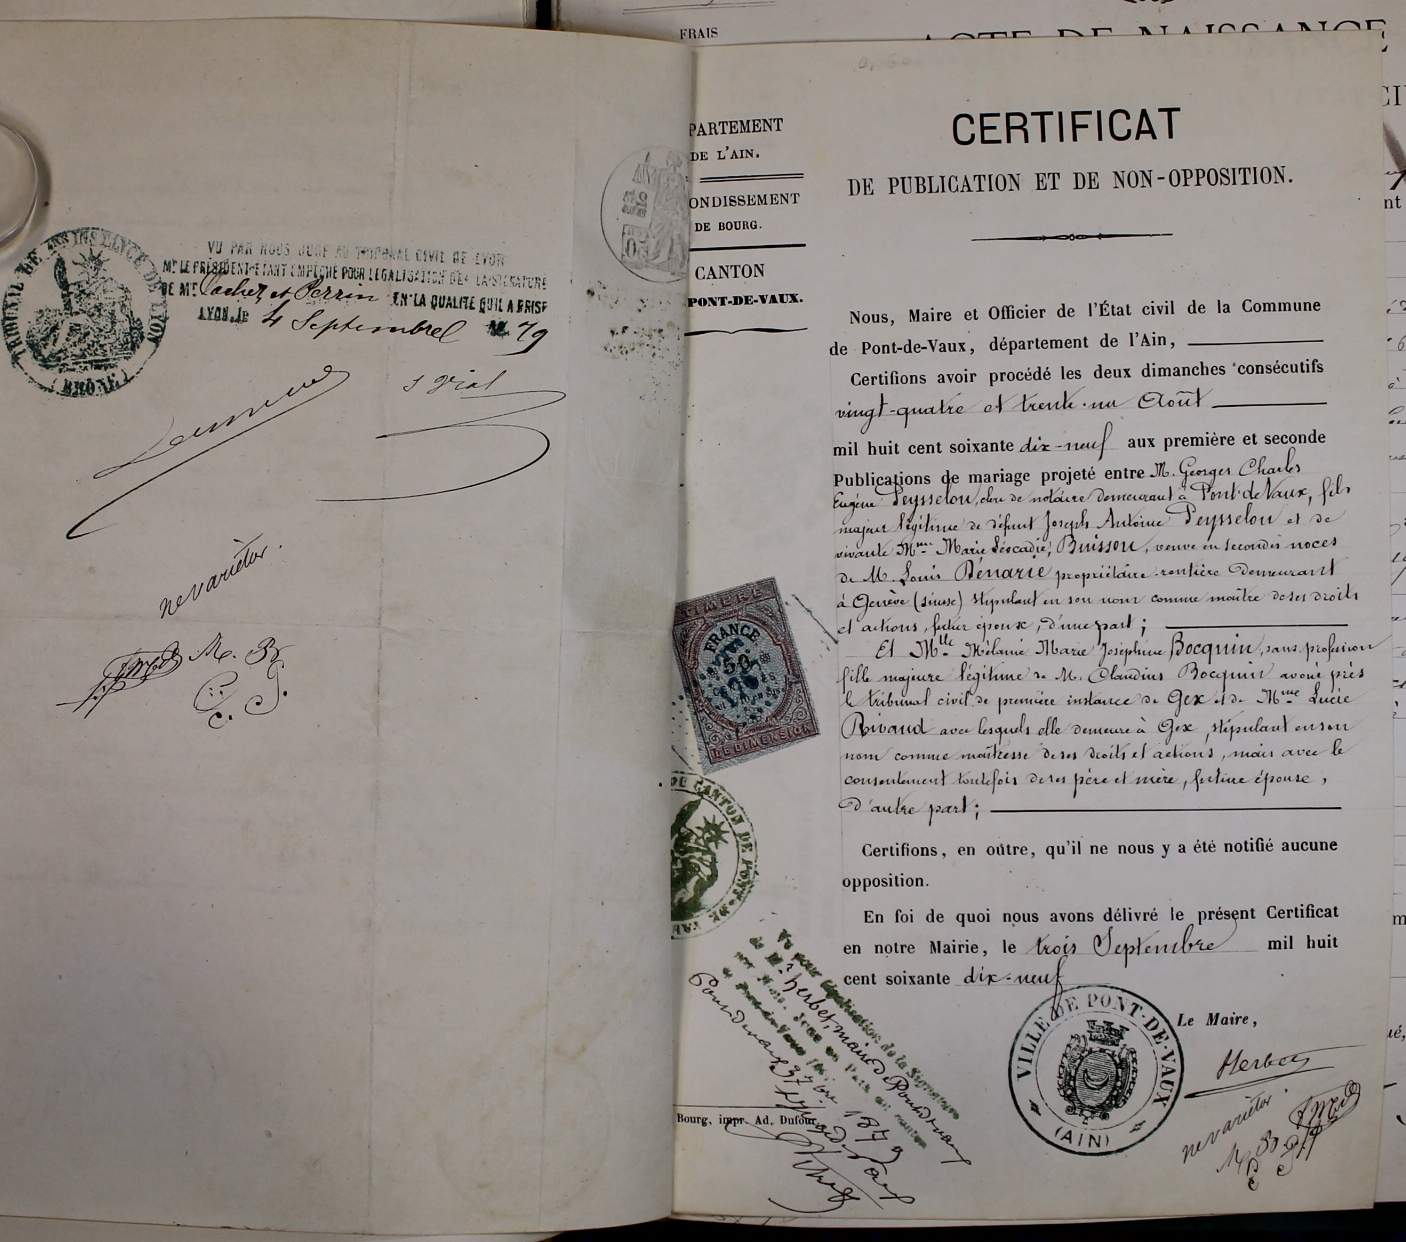 TRIBUNAL DE 1ère INSTANCE DE LYON
(RHÔNE)
VU PAR NOUS JUGE AU TRIBUNAL CIVIL DE LYON
Mr LE PRÉSIDENT ÉTANT EMPÊCHÉ POUR LÉGALISATION DE LA SIGNATURE
DE Mr Cachet et Perrin EN LA QUALITÉ QU'IL A PRISE
LYON, le 4 Septembrel 79
ne varietur.
M. B.
C. J.
FRAIS
ACTE DE NAISSANCE
PARTEMENT
DE L'AIN.
ONDISSEMENT
DE BOURG.
CANTON
PONT-DE-VAUX.
TIMBRE
FRANCE
50
DE DIMENSION
DE CANTON DE PONT-DE
CERTIFICAT
DE PUBLICATION ET DE NON-OPPOSITION.
Nous, Maire et Officier de l'État civil de la Commune
de Pont-de-Vaux, département de l'Ain,
Certifions avoir procédé les deux dimanches consécutifs
vingt-quatre et trente-un Août
mil huit cent soixante dix-neuf aux première et seconde
Publications de mariage projeté entre M. Georges Charles
Eugène Peysselon, clerc de notaire demeurant à Pont de Vaux, fils
majeur légitime de défunt Joseph Antoine Peysselon et de
vivante Mme Marie Léocadie Buisson, veuve en secondes noces
de M. Louis Bénarié propriétaire-rentière demeurant
à Genève (suisse) stipulant en son nom comme maître de ses droits
et actions, futur époux, d'une part;
Et Mlle Mélanie Marie Joséphine Bocquin, sans profession
fille majeure légitime de M. Claudius Bocquin avoué près
le tribunal civil de première instance de Gex et de Mme Lucie
Rivaud avec lesquels elle demeure à Gex, stipulant en son
nom comme maîtresse de ses droits et actions, mais avec le
consentement toutefois de ses père et mère, future épouse,
d'autre part;
Certifions, en outre, qu'il ne nous y a été notifié aucune
opposition.
En foi de quoi nous avons délivré le présent Certificat
en notre Mairie, le trois Septembre mil huit
cent soixante dix-neuf
Le Maire,
Herbet
VILLE DE PONT-DE-VAUX
(AIN)
ne varietur.
M. B.
Vu pour légalisation de la Signature
de Mr herbet, maire de Pont de vaux
par Nous, Juge de Paix du canton
de Pont-de-Vaux
Pont de vaux 3 7bre 1879
Bourg, impr. Ad. Dufour